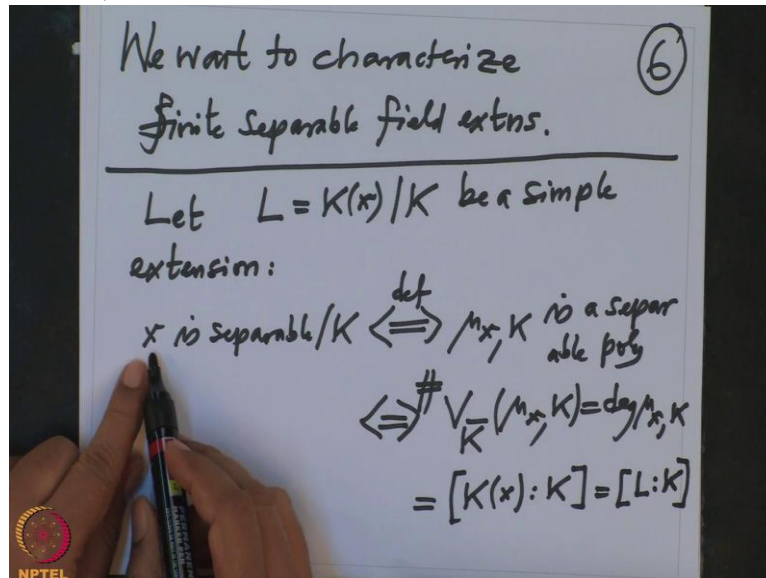 We want to characterize
finite separable field extns.
⑥
Let L = K(x) | K be a simple
extension:
x is separable/K ⟺ def μ_x,K is a separ
able poly
⟺ # V_K̅ (μ_x,K) = deg μ_x,K
= [K(x) : K] = [L : K]
PERMANEN
NPTEL